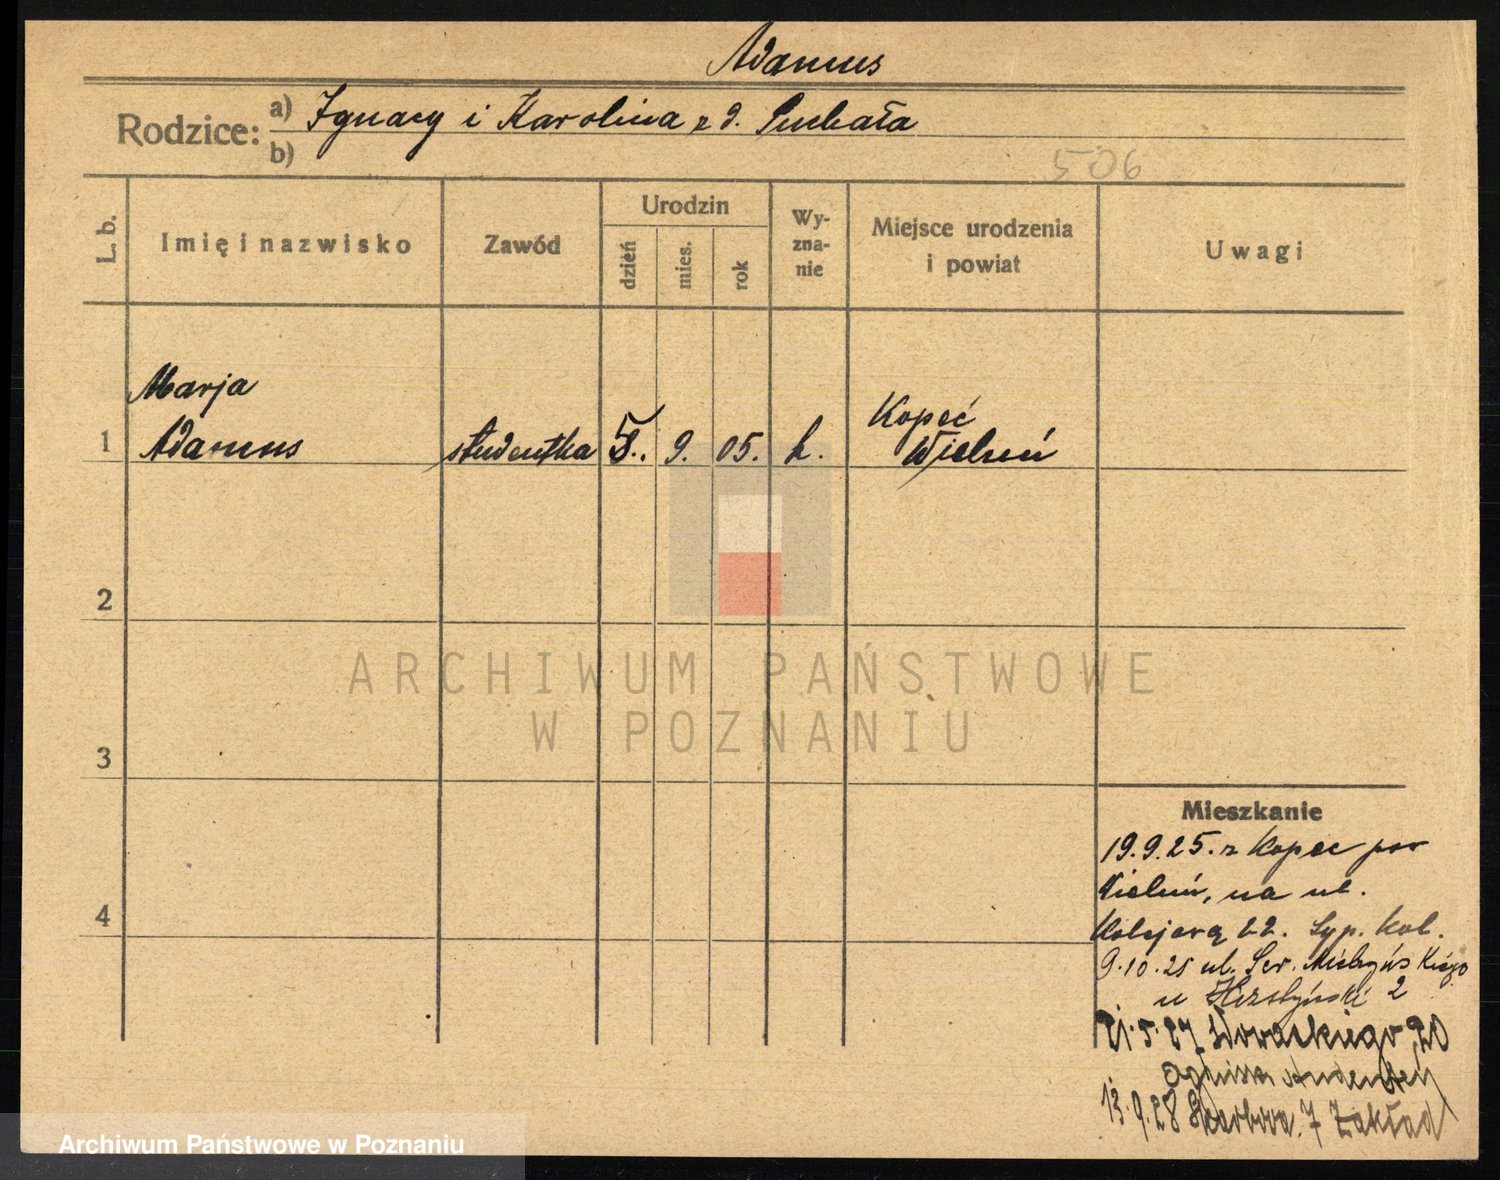 Adamus
Rodzice: a) Ignacy i Karolina z d. Suchała
b)
506
L. b.
Imię i nazwisko
Zawód
Urodzin
dzień
mies.
rok
Wy-
zna-
nie
Miejsce urodzenia
i powiat
Uwagi
Marja
1 Adamus studentka 5. 9. 05. k. Kopeć
Wieluń
2
3
4
ARCHIWUM PAŃSTWOWE
W POZNANIU
Mieszkanie
19.9.25. z Kopec pow
Wieluń, na ul.
Kolejową 22. Syp. Kol.
9.10.25 ul. Sew. Mielżyńskiego
u 2
21.5.27 Słowackiego 20
13.9.28 7 Zakład
Archiwum Państwowe w Poznaniu